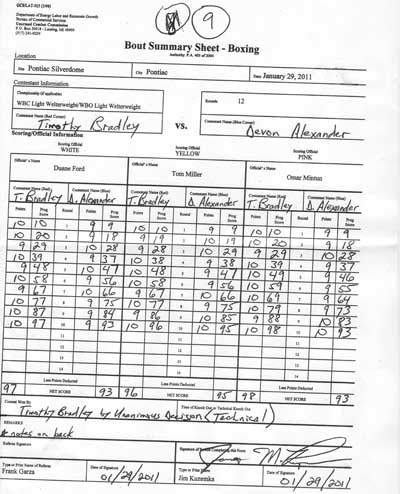 GCS/LAT-925 (3/09)
9
Department of Energy Labor and Economic Growth
Bureau of Commercial Services
Unarmed Combat Commission
P.O. Box 30018 - Lansing, MI 48909
Bout Summary Sheet - Boxing
Authority: P.A. 403 of 2004
Location
Site Pontiac Silverdome City Pontiac Date January 29, 2011
Contestant Information
Championship (if applicable) Rounds 12
WBC Light Welterweight/WBO Light Welterweight
Contestant Name (Red Corner) Timothy Bradley VS. Contestant Name (Blue Corner) Devon Alexander
Scoring/Official Information
Scoring Official WHITE Scoring Official YELLOW Scoring Official PINK
Official's Name Duane Ford Official's Name Tom Miller Official's Name Omar Mintun
Contestant Name (Red) T. Bradley Contestant Name (Blue) D. Alexander Contestant Name (Red) T. Bradley Contestant Name (Blue) D. Alexander Contestant Name (Red) T. Bradley Contestant Name (Blue) D. Alexander
Points Prog Score Round Points Prog Score Points Prog Score Round Points Prog Score Points Prog Score Round Points Prog Score
10 10 1 9 9 10 10 1 9 9 10 10 1 9 9
10 20 2 9 18 9 19 2 10 19 10 20 2 9 18
9 29 3 10 28 9 28 3 10 29 9 29 3 10 28
10 39 4 9 37 10 38 4 9 38 10 39 4 9 37
9 48 5 10 47 10 48 5 9 47 10 49 5 9 46
10 58 6 9 56 10 58 6 9 56 10 59 6 9 55
9 67 7 10 66 9 67 7 10 66 10 69 7 9 64
10 77 8 9 75 10 77 8 9 75 10 79 8 9 73
10 87 9 9 84 9 86 9 10 85 9 88 9 10 83
10 97 10 9 93 10 96 10 10 95 10 98 10 10 93
11 11 11
12 12 12
13 13 13
14 14 14
Less Points Deducted Less Points Deducted Less Points Deducted
97 NET SCORE 93 96 NET SCORE 95 98 NET SCORE 93
Contest Won By Time of Knock Out or Technical Knock Out
Timothy Bradley by Unanimous Decison (Technical)
REMARKS
* notes on back
Referee Signature Signature of Person Completing this Form
Type or Print Name of Referee Date of Signature Type or Print Name Date of Signature
Frank Garza 01/29/2011 Jim Kuzemka 01/29/2011